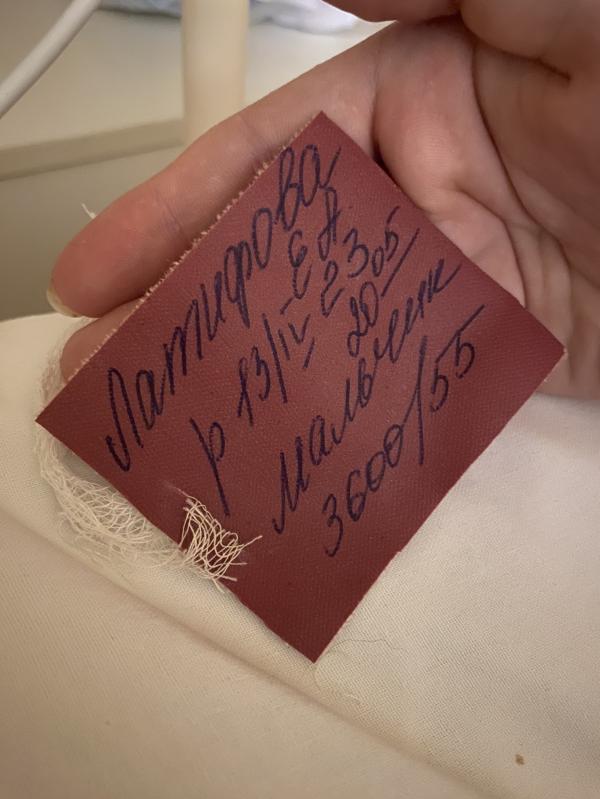 Латифова
Е А
р 13/IV-23
20 05
Мальчик
3600/55